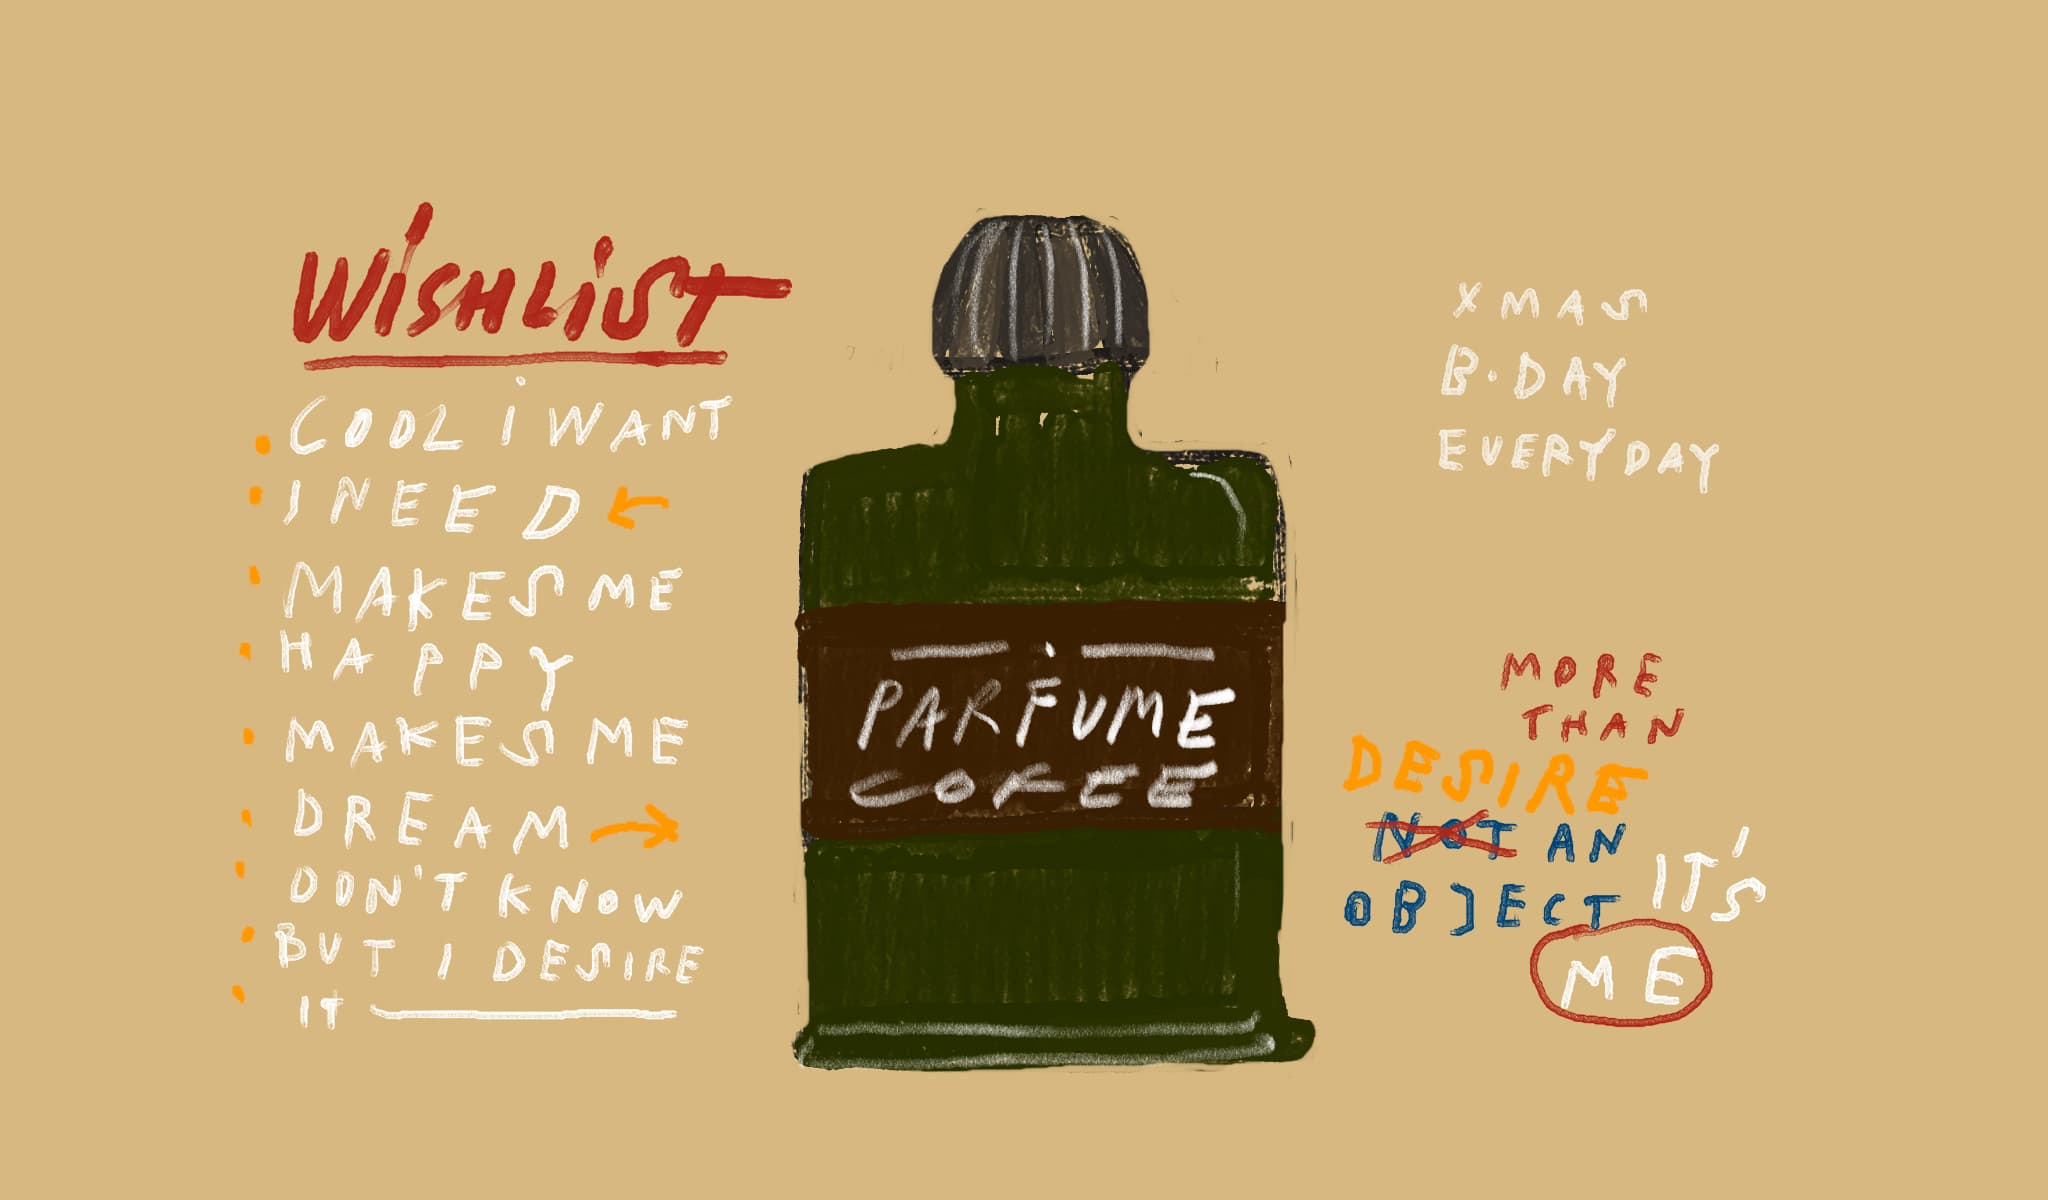 WiSHLiST
COOL i WANT
I NEED
MAKES ME
HAPPY
MAKES ME
DREAM
DON'T KNOW
BUT I DESIRE
IT
PARFUME
COFEE
XMAS
B·DAY
EVERYDAY
MORE
THAN
DESIRE
NOT AN
OBJECT IT'S
ME